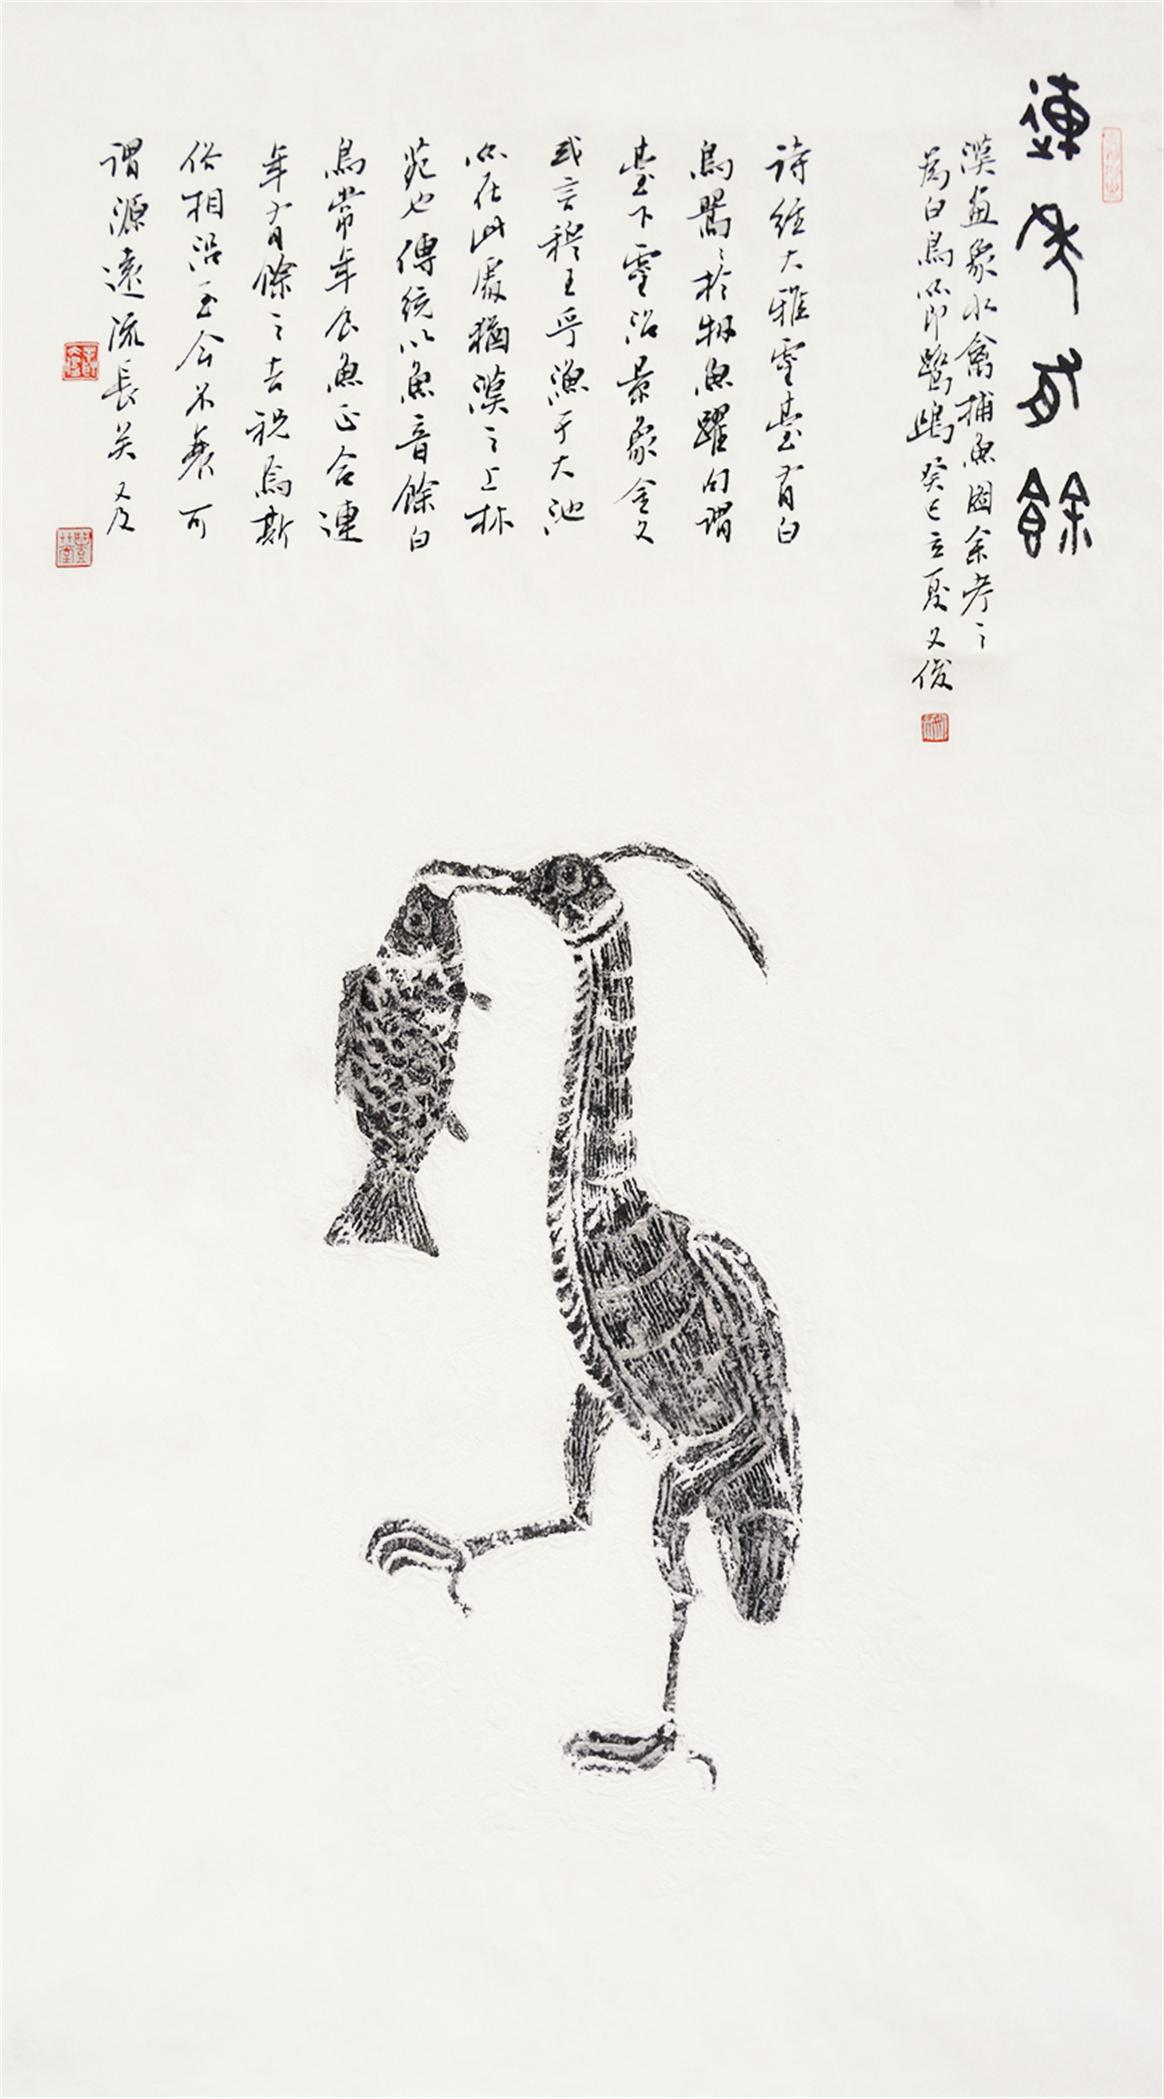 連年有餘
漢畫象水禽捕魚圖余考之
為白鳥亦即鷺 癸巳立夏又俊
詩經大雅靈臺有白
鳥翯〻於牣魚躍句謂
臺下靈沼景象金文
或言穆王乎漁于大池
亦在此處猶漢之上林
苑也傳統以魚音餘白
鳥常年食魚正合連
年有餘之吉祝焉斯
俗相沿至今不衰可
謂源遠流長矣 又及